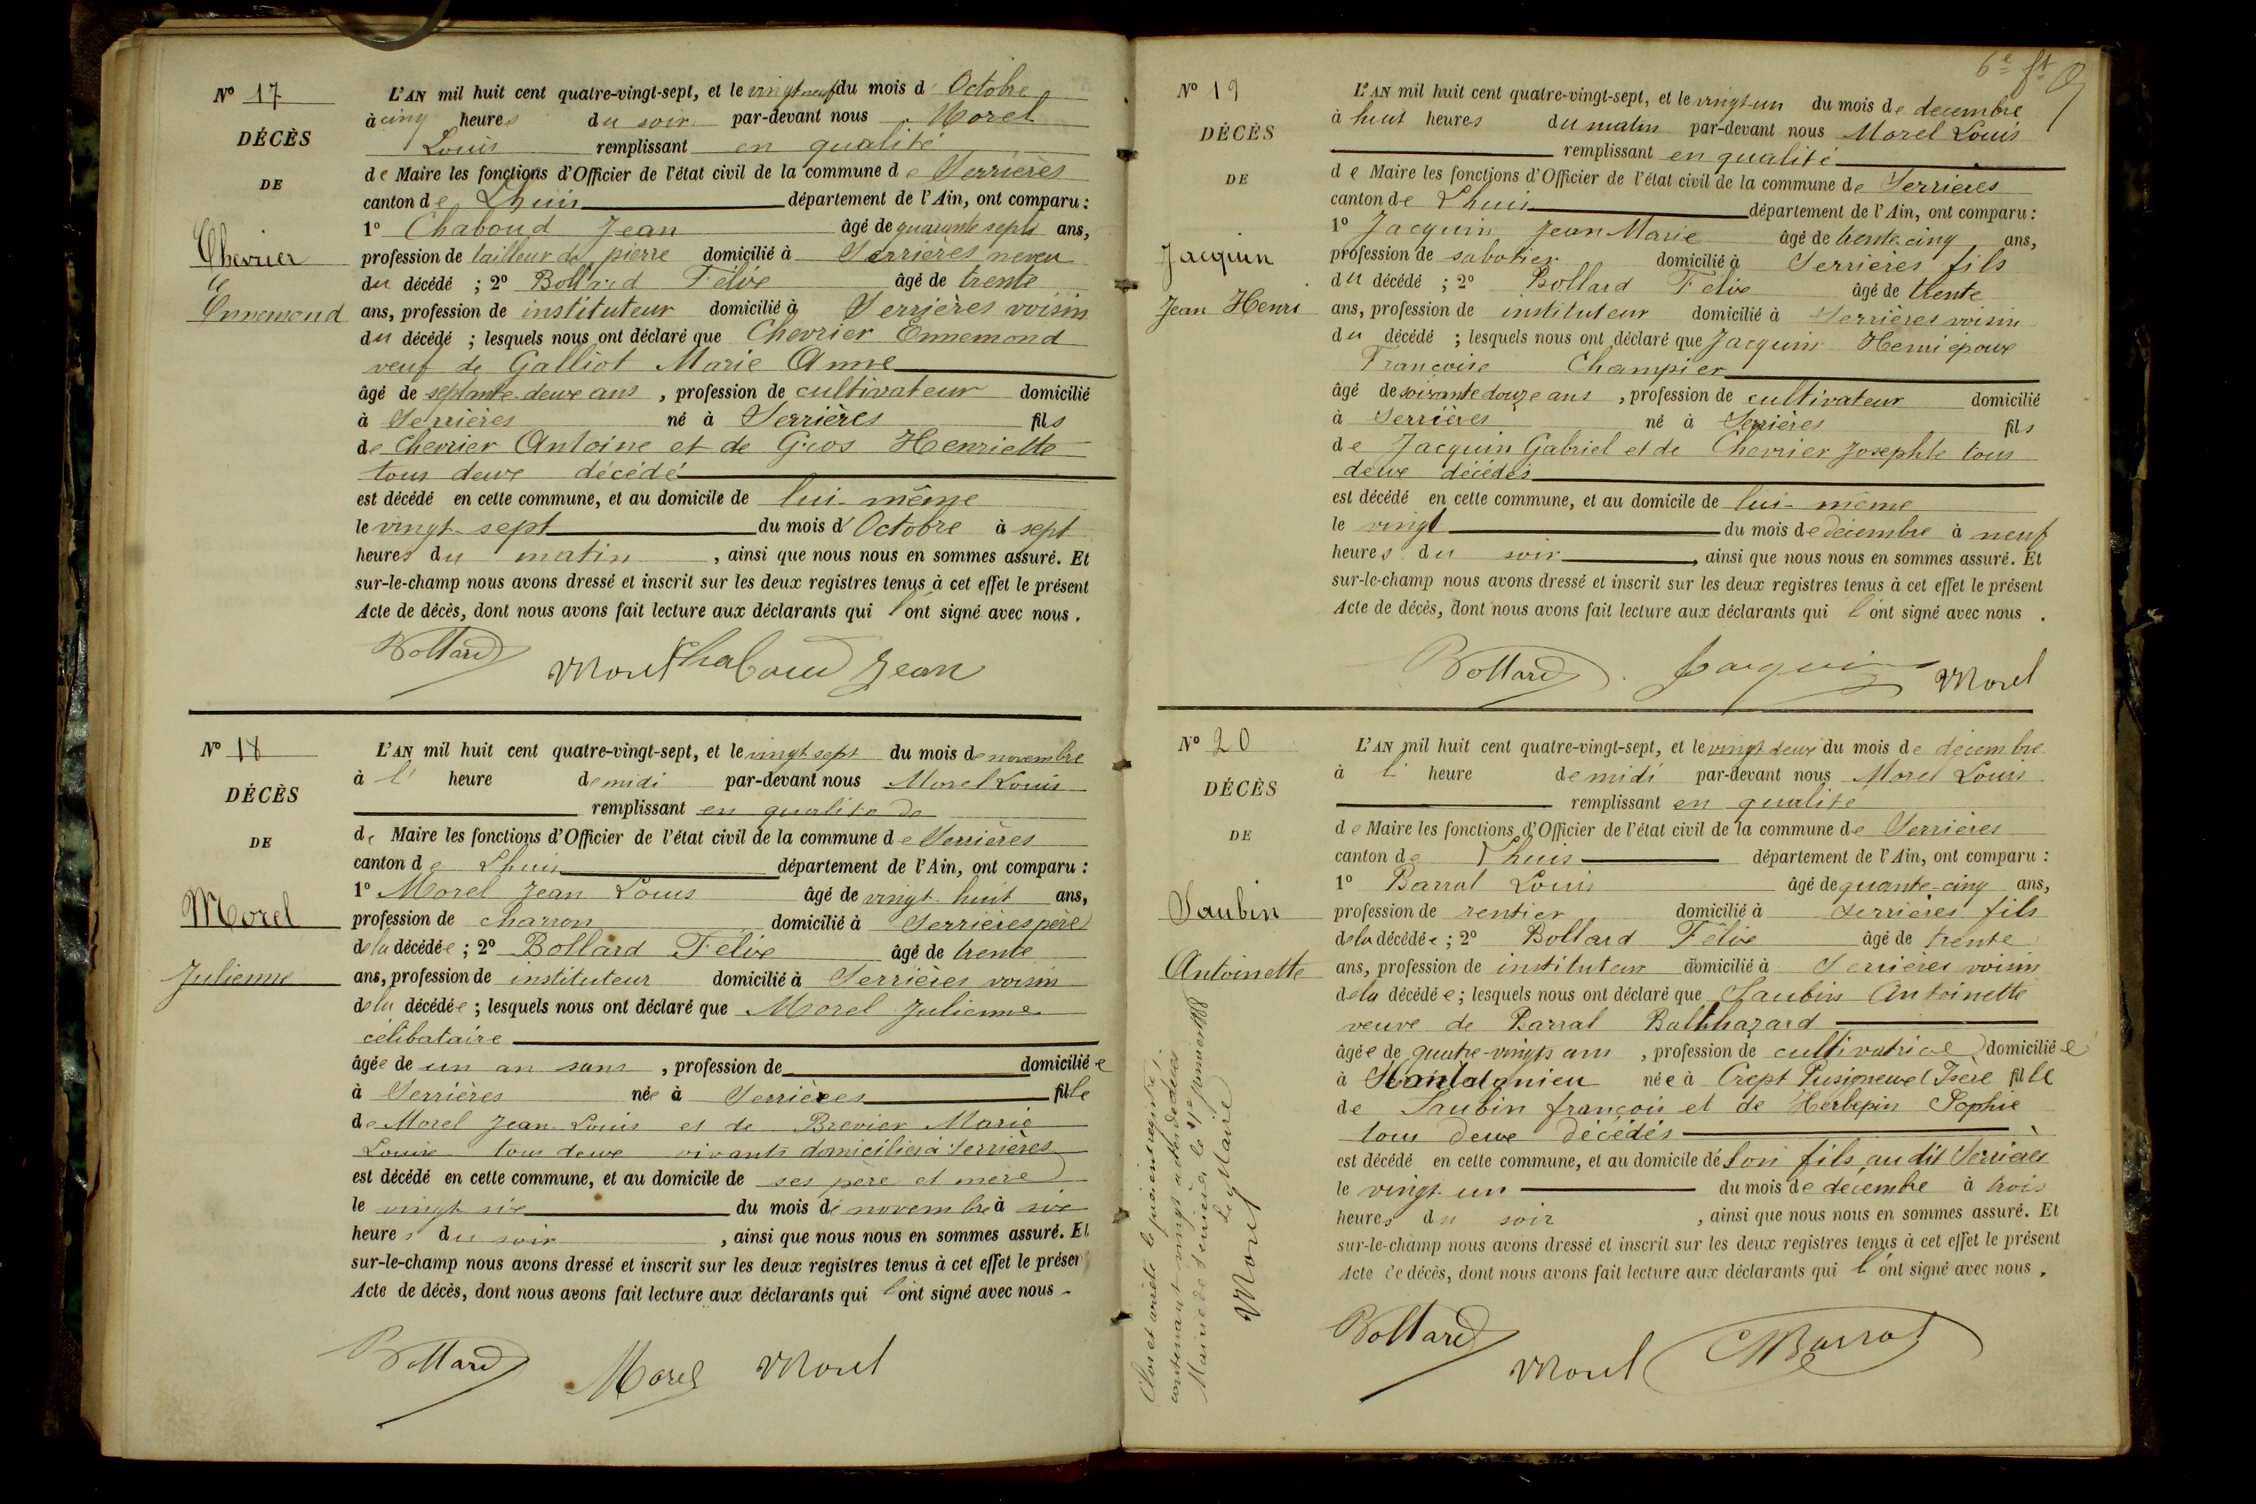 N° 17
DÉCÈS
DE
Chevrier
Ennemond
L'AN mil huit cent quatre-vingt-sept, et le vingt neuf du mois d'Octobre
à cinq heures du soir par-devant nous Morel
Louis remplissant en qualité
de Maire les fonctions d'Officier de l'état civil de la commune de Serrières
canton de Lhuis département de l'Ain, ont comparu :
1° Chaboud Jean âgé de quarante sept ans,
profession de tailleur de pierre domicilié à Serrières neveu
du décédé ; 2° Bollard Félix âgé de trente
ans, profession de instituteur domicilié à Serrières voisin
du décédé ; lesquels nous ont déclaré que Chevrier Ennemond
veuf de Galliot Marie Anne
âgé de septante-deux ans, profession de cultivateur domicilié
à Serrières né à Serrières fils
de Chevrier Antoine et de Gros Henriette
tous deux décédé
est décédé en cette commune, et au domicile de lui-même
le vingt-sept du mois d'Octobre à sept
heures du matin, ainsi que nous nous en sommes assuré. Et
sur-le-champ nous avons dressé et inscrit sur les deux registres tenus à cet effet le présent
Acte de décès, dont nous avons fait lecture aux déclarants qui l'ont signé avec nous.
Bollard Morel Chaboud Jean
N° 18
DÉCÈS
DE
Morel
Julienne
L'AN mil huit cent quatre-vingt-sept, et le vingt sept du mois de novembre
à l' heure de midi par-devant nous Morel Louis
remplissant en qualité de
de Maire les fonctions d'Officier de l'état civil de la commune de Serrières
canton de Lhuis département de l'Ain, ont comparu :
1° Morel Jean Louis âgé de vingt-huit ans,
profession de charron domicilié à Serrières père
de la décédée ; 2° Bollard Félix âgé de trente
ans, profession de instituteur domicilié à Serrières voisin
de la décédée ; lesquels nous ont déclaré que Morel Julienne
célibataire
âgée de un an sans, profession de domiciliée
à Serrières née à Serrières fille
de Morel Jean Louis et de Brevier Marie
Louise tous deux vivants domiciliés à Serrières
est décédé en cette commune, et au domicile de ses père et mère
le vingt six du mois de novembre à six
heures du soir, ainsi que nous nous en sommes assuré. Et
sur-le-champ nous avons dressé et inscrit sur les deux registres tenus à cet effet le présen
Acte de décès, dont nous avons fait lecture aux déclarants qui l'ont signé avec nous.
Bollard Morel Morel
6e ft
N° 19
DÉCÈS
DE
Jacquin
Jean Henri
L'AN mil huit cent quatre-vingt-sept, et le vingt-un du mois de decembre
à huit heures du matin par-devant nous Morel Louis
remplissant en qualité
de Maire les fonctions d'Officier de l'état civil de la commune de Serrières
canton de Lhuis département de l'Ain, ont comparu :
1° Jacquin Jean Marie âgé de trente-cinq ans,
profession de sabotier domicilié à Serrières fils
du décédé ; 2° Bollard Félix âgé de trente
ans, profession de instituteur domicilié à Serrières voisin
du décédé ; lesquels nous ont déclaré que Jacquin Henri époux
Françoise Champier
âgé de soixante douze ans, profession de cultivateur domicilié
à Serrières né à Serrières fils
de Jacquin Gabriel et de Chevrier Josephte tous
deux décédés
est décédé en cette commune, et au domicile de lui-même
le vingt du mois de décembre à neuf
heures du soir, ainsi que nous nous en sommes assuré. Et
sur-le-champ nous avons dressé et inscrit sur les deux registres tenus à cet effet le présent
Acte de décès, dont nous avons fait lecture aux déclarants qui l'ont signé avec nous.
Bollard Jacquin Morel
N° 20
DÉCÈS
DE
Saubin
Antoinette
L'AN mil huit cent quatre-vingt-sept, et le vingt deux du mois de décembre
à l' heure de midi par-devant nous Morel Louis
remplissant en qualité
de Maire les fonctions d'Officier de l'état civil de la commune de Serrières
canton de Lhuis département de l'Ain, ont comparu :
1° Barral Louis âgé de quante-cinq ans,
profession de rentier domicilié à Serrières fils
de la décédée ; 2° Bollard Félix âgé de trente
ans, profession de instituteur domicilié à Serrières voisin
de la décédée ; lesquels nous ont déclaré que Saubin Antoinette
veuve de Barral Balthazard
âgée de quatre-vingts ans, profession de cultivatrice domiciliée
à née à Crept Pusigneu (Isère fille
de Saubin françois et de Herbepin Sophie
tous deux décédés
est décédé en cette commune, et au domicile de son fils, au dit Serrières
le vingt-un du mois de decembre à trois
heures du soir, ainsi que nous nous en sommes assuré. Et
sur-le-champ nous avons dressé et inscrit sur les deux registres tenus à cet effet le présent
Acte de décès, dont nous avons fait lecture aux déclarants qui l'ont signé avec nous.
Bollard Morel Barral
Clos et arrêté le présent registre
contenant vingt actes de décès
Mairie de Serrières le 1er janvier 1888
Le Maire
Morel